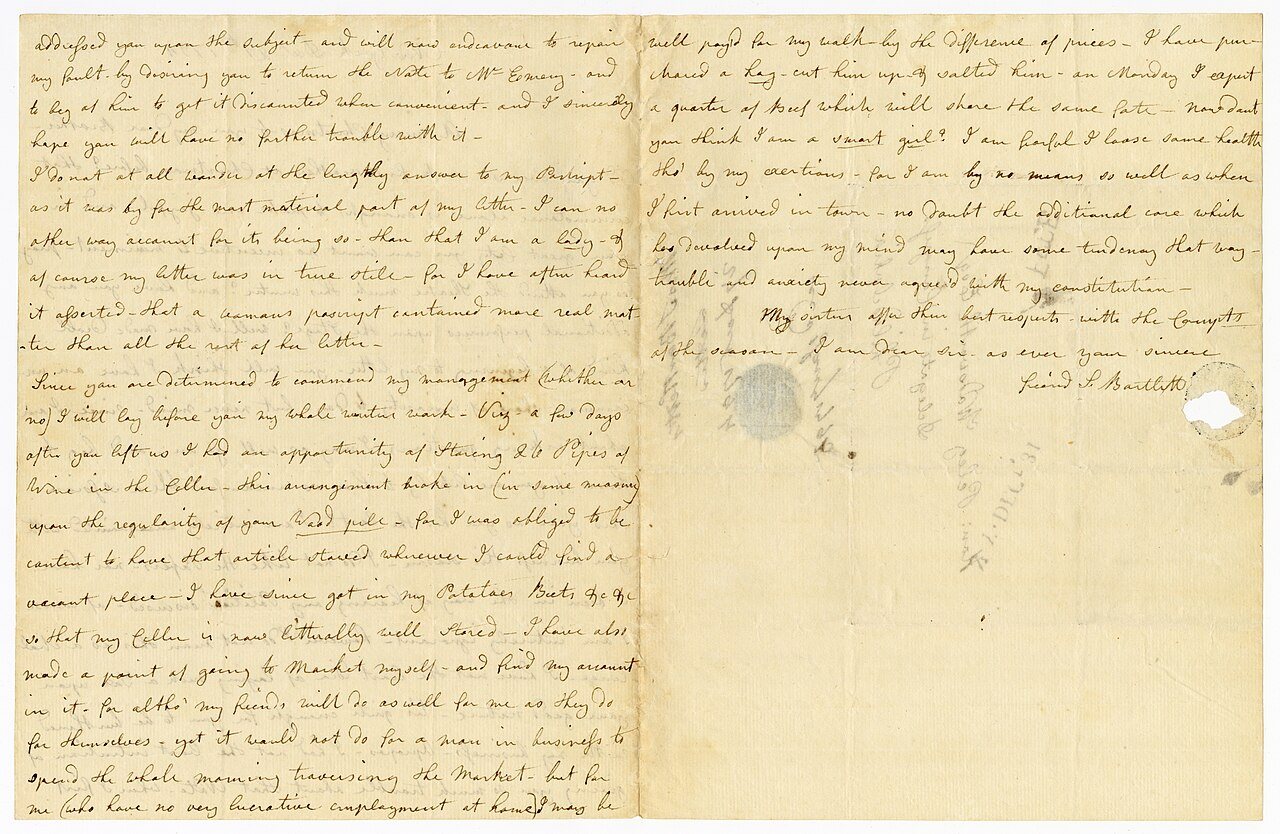 addressed you upon the subject - and will now endeavour to repair
my fault - by desiring you to return the Note to Mr Emery - and
to beg of him to get it discounted when convenient - and I sincerely
hope you will have no farther trouble with it -
I do not at all wonder at the lengthy answer to my Postcript -
as it was by far the most material part of my letter - I can no
other way account for its being so - than that I am a lady - &
of course my letter was in true stile - for I have often heard
it asserted - that a womans poscript contained more real mat-
-ter than all the rest of her letter -
Since you are determined to commend my management (whether or
no) I will lay before you my whole winters work - Viz - a few days
after you left us I had an opportunity of Storeing 26 Pipes of
Wine in the Celler - this arrangement broke in (in some measure)
upon the regularity of your Wood pile - for I was obliged to be
content to have that article stowed wherever I could find a
vacant place - I have since got in my Potatoes Beets &c &c
so that my Celler is now litturally well Stored - I have also
made a point of going to Market myself - and find my account
in it - for altho' my friends will do as well for me as they do
for themselves - yet it would not do for a man in business to
spend the whole morning traversing the Market - but for
me (who have no very lucrative employment at home) I may be
well pay'd for my walk - by the difference of prices - I have pur-
chased a hog - cut him up & salted him - on Monday I expect
a quarter of Beef which will share the same fate - now dont
you think I am a smart girl? I am fearful I loose some health
tho' by my exertions - for I am by no means so well as when
I first arrived in town - no doubt the additional care which
has devolved upon my mind may have some tendency that way -
trouble and anxiety never agreed with my constitution -
My sisters offer their best respects - with the Compts
of the season - I am dear sir - as ever your sincere
friend S. Bartlett